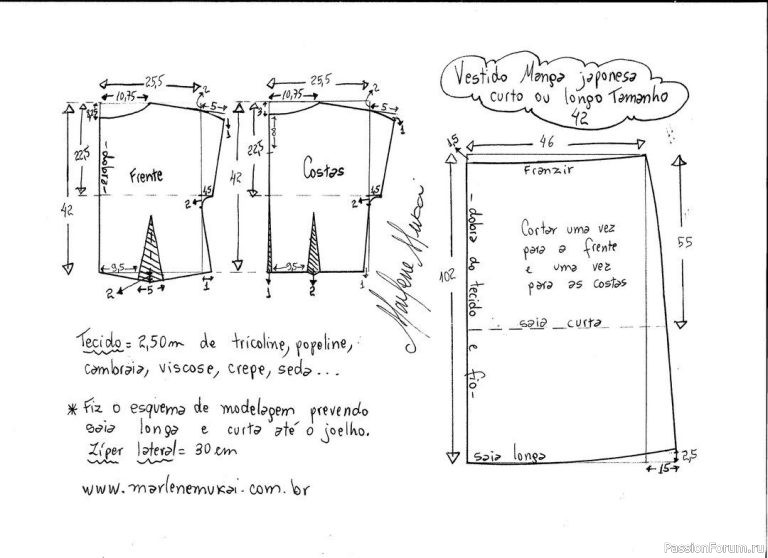 Vestido Manga japonesa
curto ou longo Tamanho
42
25,5
2
10,75
5
1
22,5
42
-dobra-
Frente
1,5
2
9,5
2
5
1
25,5
2
10,75
5
3
1
8
22,5
42
Costas
1,5
2
9,5
1
2
1
Marlene Mukai
1,5
46
Franzir
- dobra do tecido e fio -
Cortar uma vez
para a frente
e uma vez
para as costas
55
102
saia curta
saia longa
2,5
15
Tecido = 2,50m de tricoline, popeline,
cambraia, viscose, crepe, seda...
* Fiz o esquema de modelagem prevendo
saia longa e curta até o joelho.
Zíper lateral = 30 cm
www.marlenemukai.com.br
PassionForum.ru